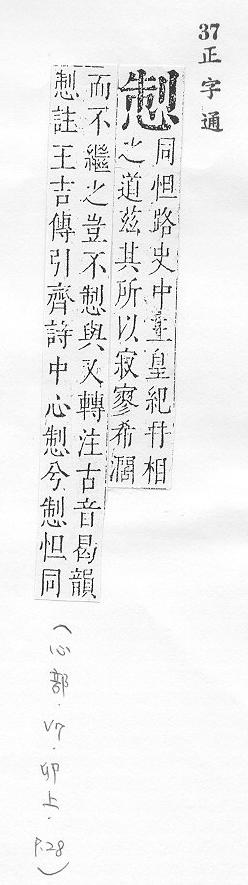 37正字通
同怛路史中皇紀幷相
之道茲其所以寂寥希濶
而不繼之豈不與又轉注古音曷韻
註王吉傳引齊詩中心兮怛同
(心部.V7.卯上.P.28)